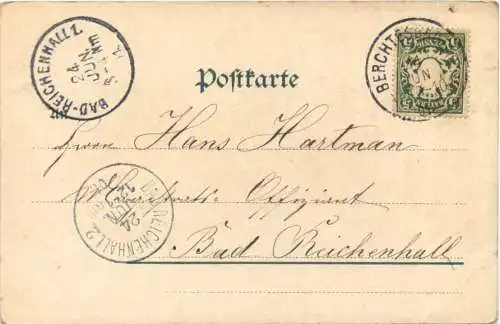 BAD-REICHENHALL 1.
24
JUN
Postkarte
BERCHT
JUN
Herrn Hans Hartman
Offiziant
REICHENHALL 2
24
JUN
Bad Reichenhall